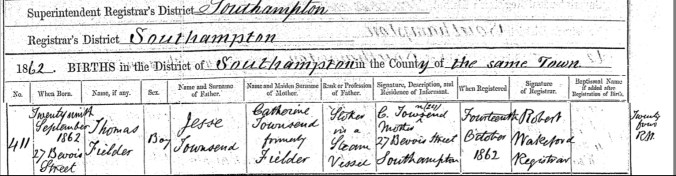 Superintendent Registrar's District Southampton
Registrar's District Southampton
1862. BIRTHS in the District of Southampton in the County of the same Town.
No. When Born. Name, if any. Sex. Name and Surname of Father. Name and Maiden Surname of Mother. Rank or Profession of Father. Signature, Description, and Residence of Informant. When Registered Signature of Registrar. Baptismal Name if added after Registration of Birth.
411
Twenty ninth
September
1862
27 Bevois
Street
Thomas
Fielder
Boy
Jesse
Townsend
Catherine
Townsend
formerly
Fielder
Stoker
in a
Steam
Vessel
C. Townsend
Mother
27 Bevois Street
Southampton
Fourteenth
October
1862
Robert
Wakeford
Registrar
Twenty
four
R.W.